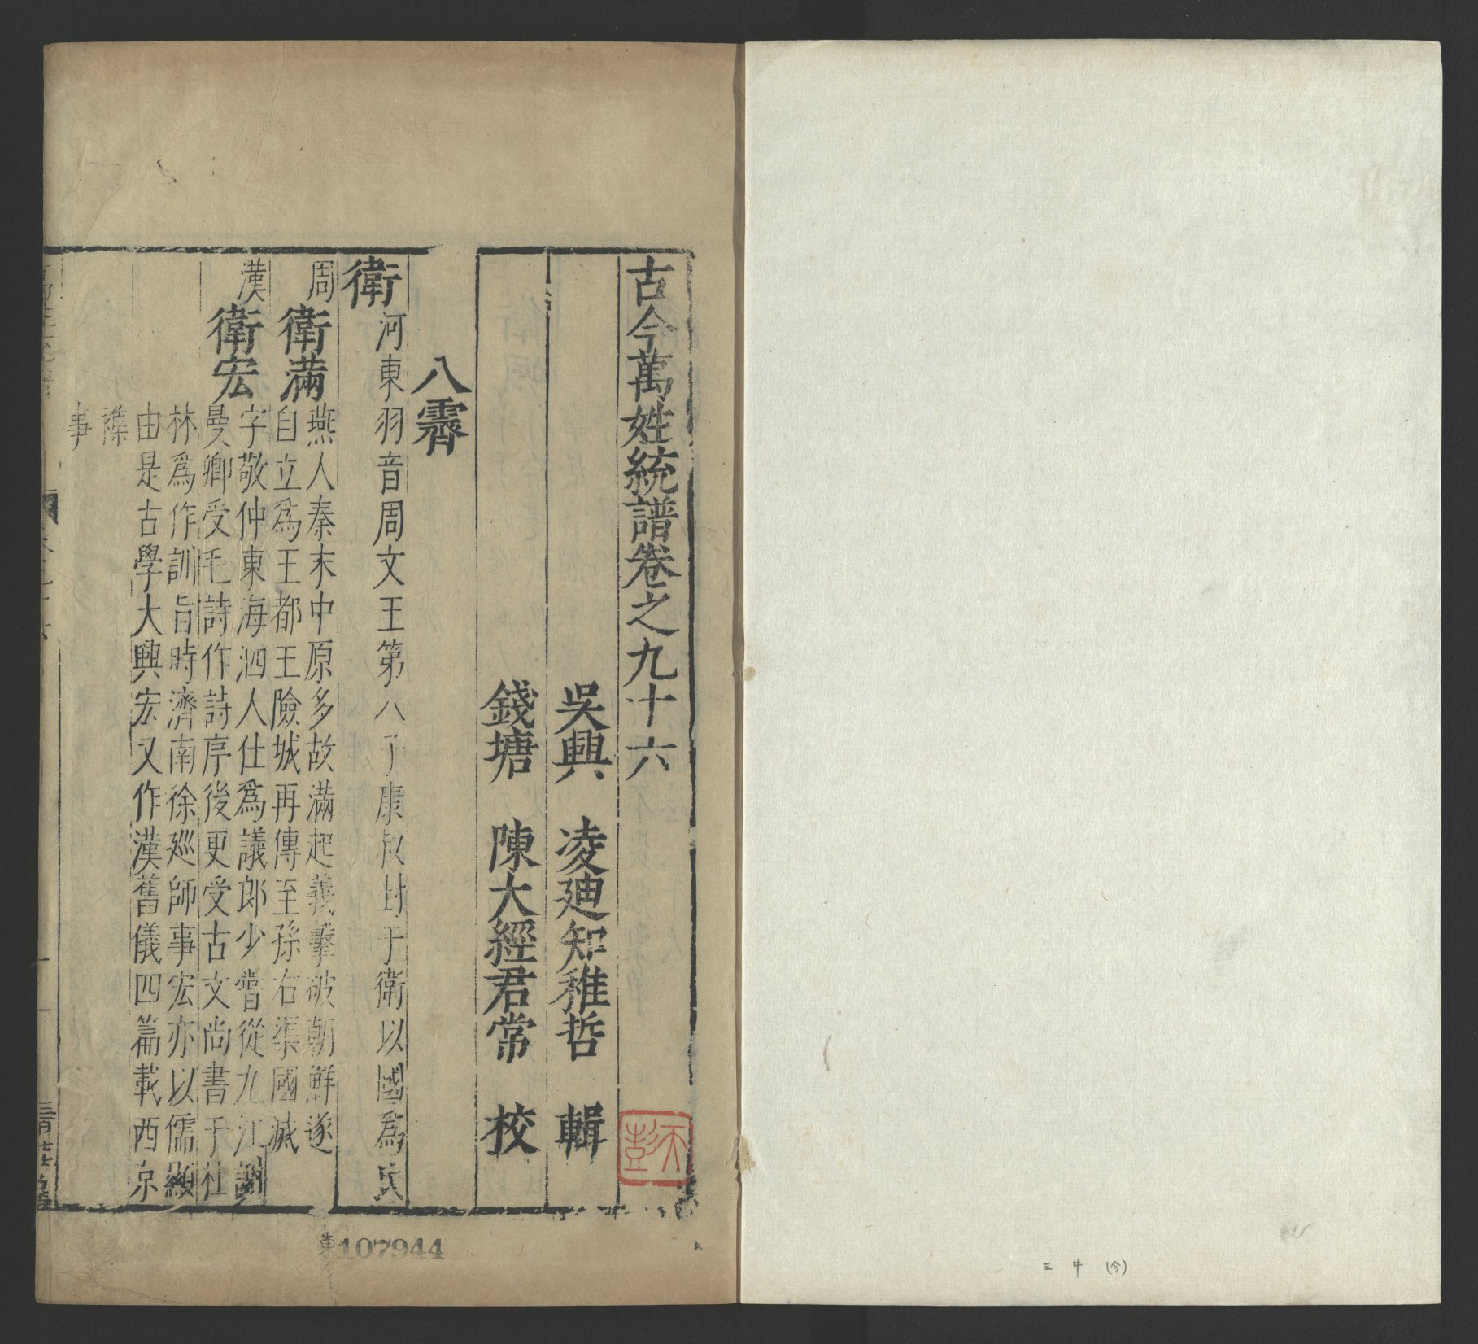 古今萬姓統譜卷之九十六
吳興 凌廸知稚哲 輯
錢塘 陳大經君常 校
八霽
衛 河東羽音周文王第八子康叔封于衛以國爲氏
周 衛滿 燕人秦末中原多故滿起義擊破朝鮮遂
自立爲王都王險城再傳至孫右渠國滅
漢 衛宏 字敬仲東海泗人仕爲議郎少嘗從九江謝
曼卿受毛詩作詩序後更受古文尚書于杜
林爲作訓旨時濟南徐廵師事宏亦以儒顯
由是古學大興宏又作漢舊儀四篇載西京
襍
事
東107944
三 中 (今)